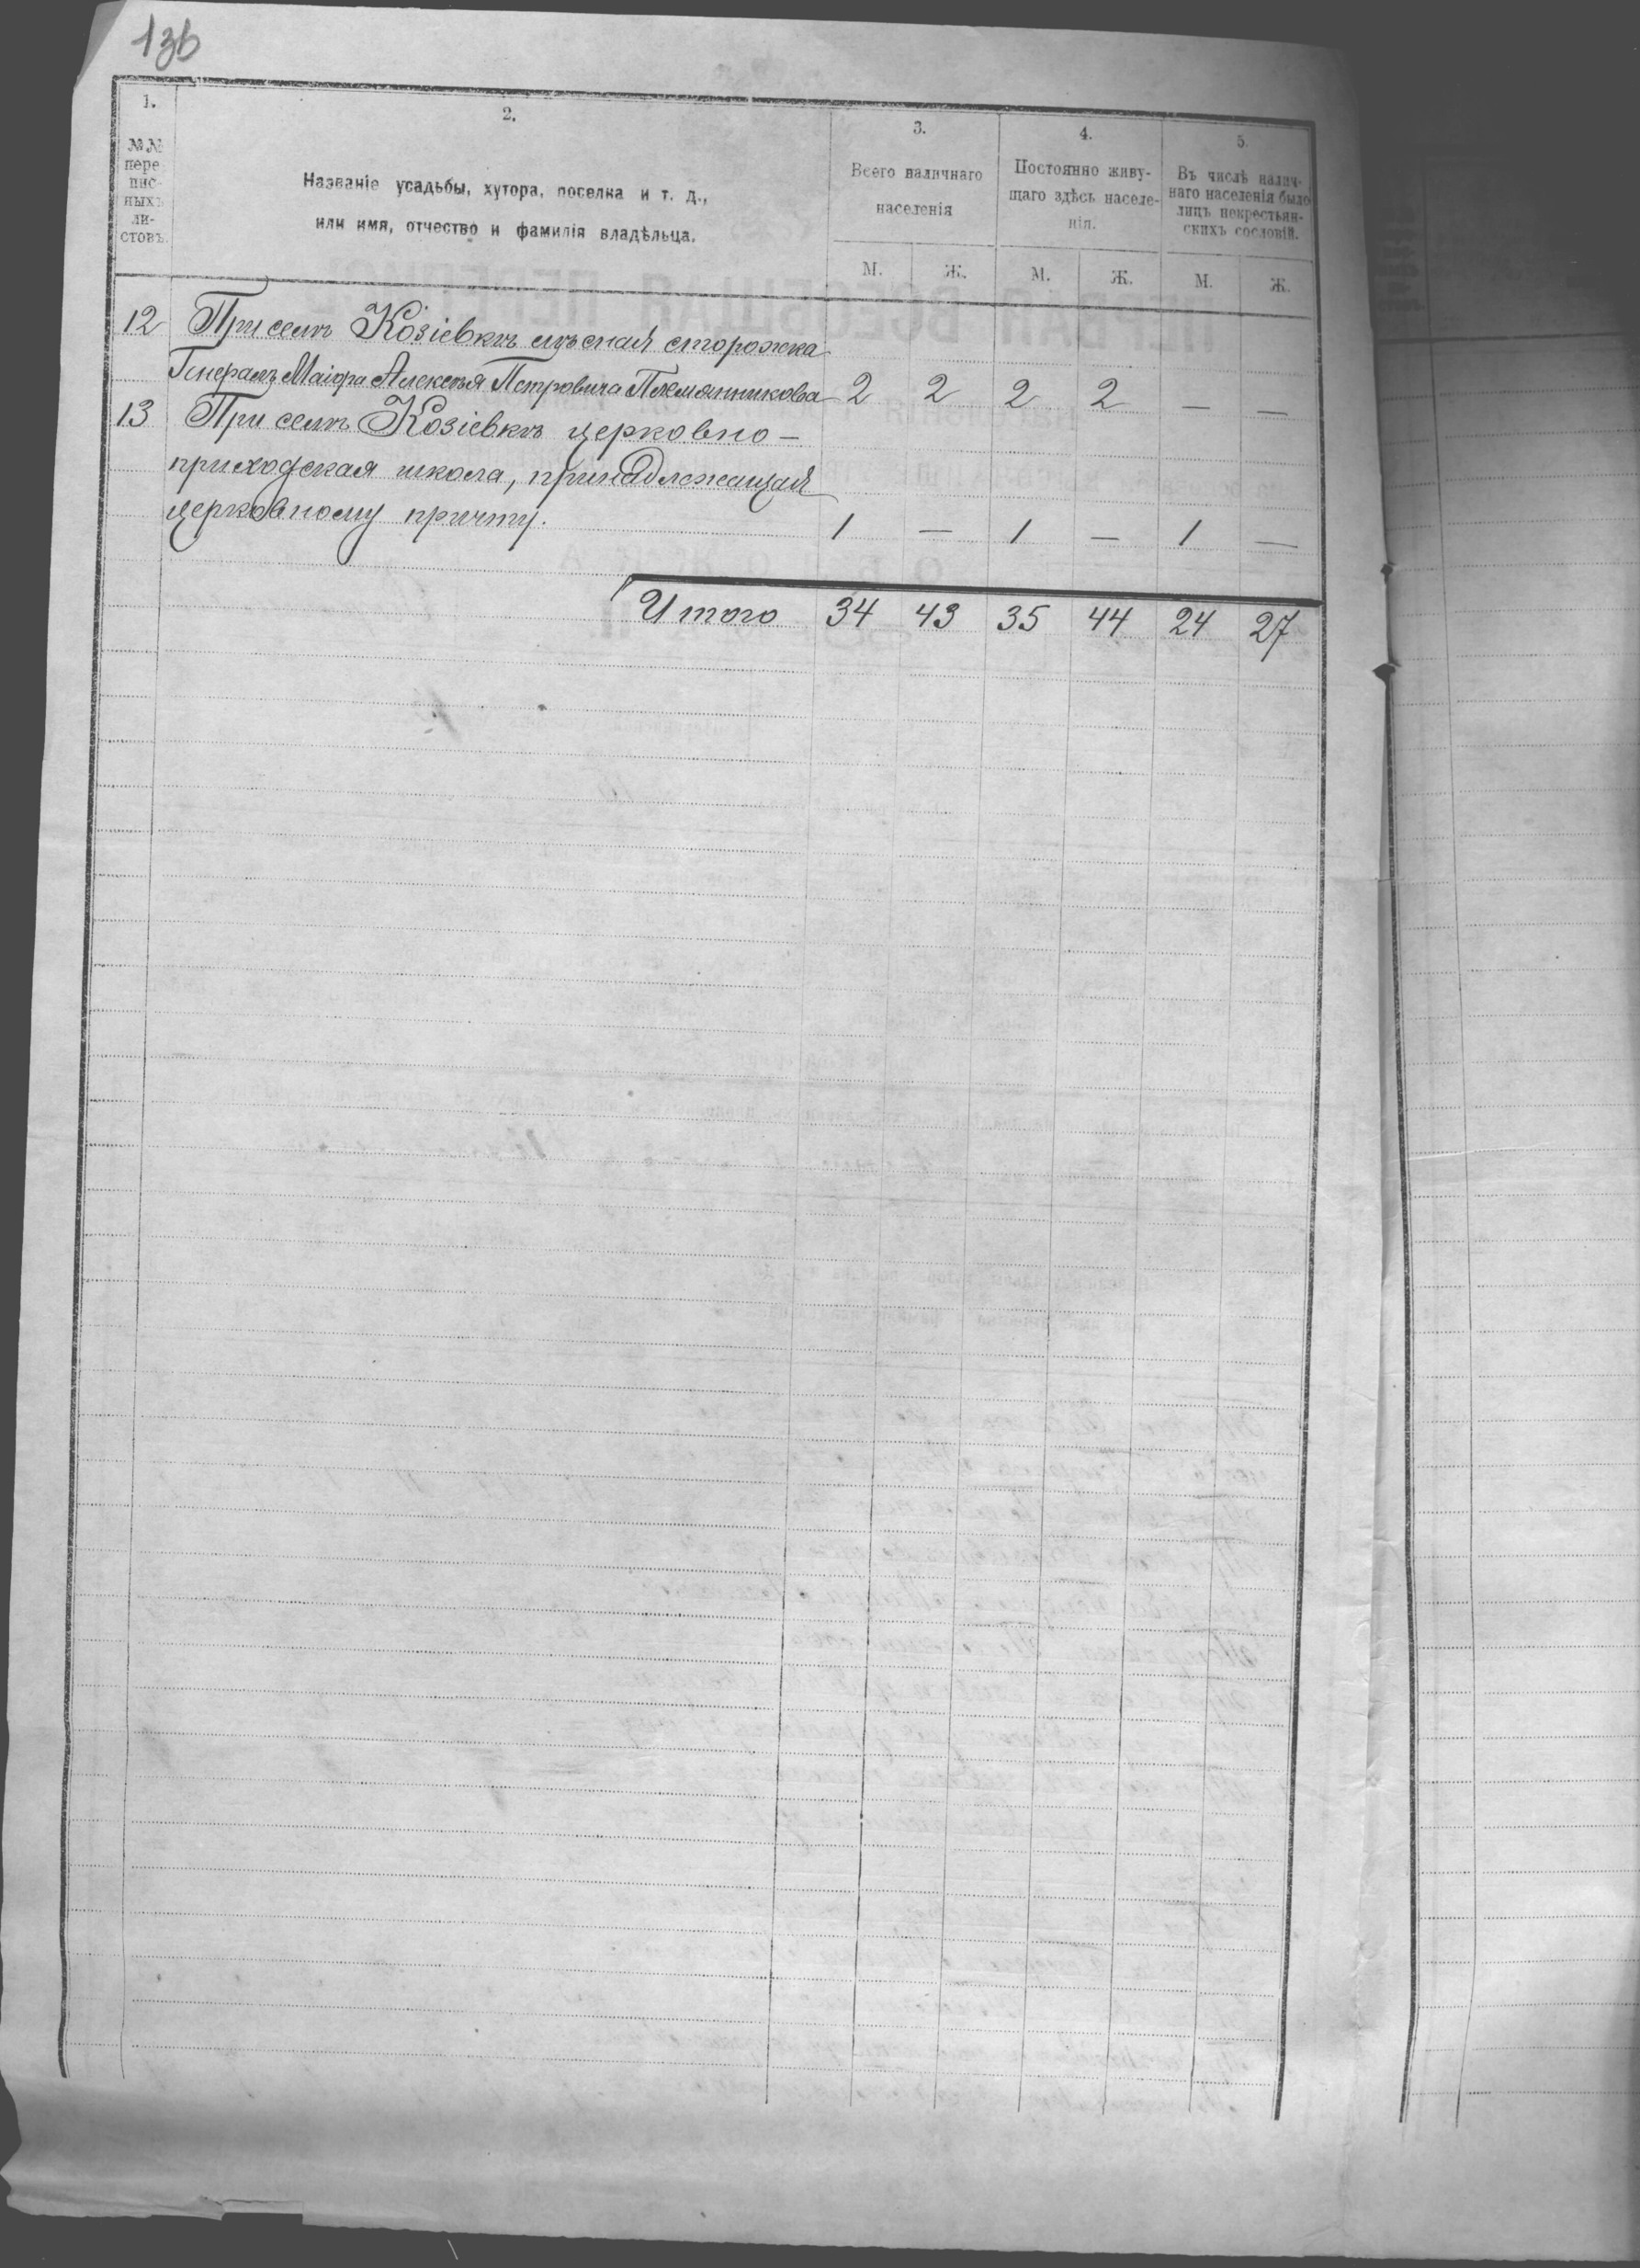 13б
1.
2.
3.
4.
5.
№№ пере-
пис-
ныхъ
ли-
стовъ.
Названіе усадьбы, хутора, поселка и т. д.,
или имя, отчество и фамилія владѣльца.
Всего наличнаго
населенія
Постоянно живу-
щаго здѣсь населе-
нія.
Въ числѣ налич-
наго населенія было
лицъ некрестьян-
скихъ сословій.
М. Ж. М. Ж. М. Ж.
12 При селѣ Козіевкѣ лѣсная сторожка
Генералъ Маіора Алексѣя Петровича Племянникова 2 2 2 2 — —
13 При селѣ Козіевкѣ церковно-
приходская школа, принадлежащая
церковному причту. 1 — 1 — 1 —
Итого 34 43 35 44 24 27